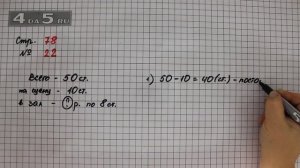 4A5.RU
Стр. 78
№ 22
Всего - 50 ст.
на сцену - 10 ст.
в зал - ? р. по 8 ст.
1) 50 - 10 = 40 (ст.) - поста